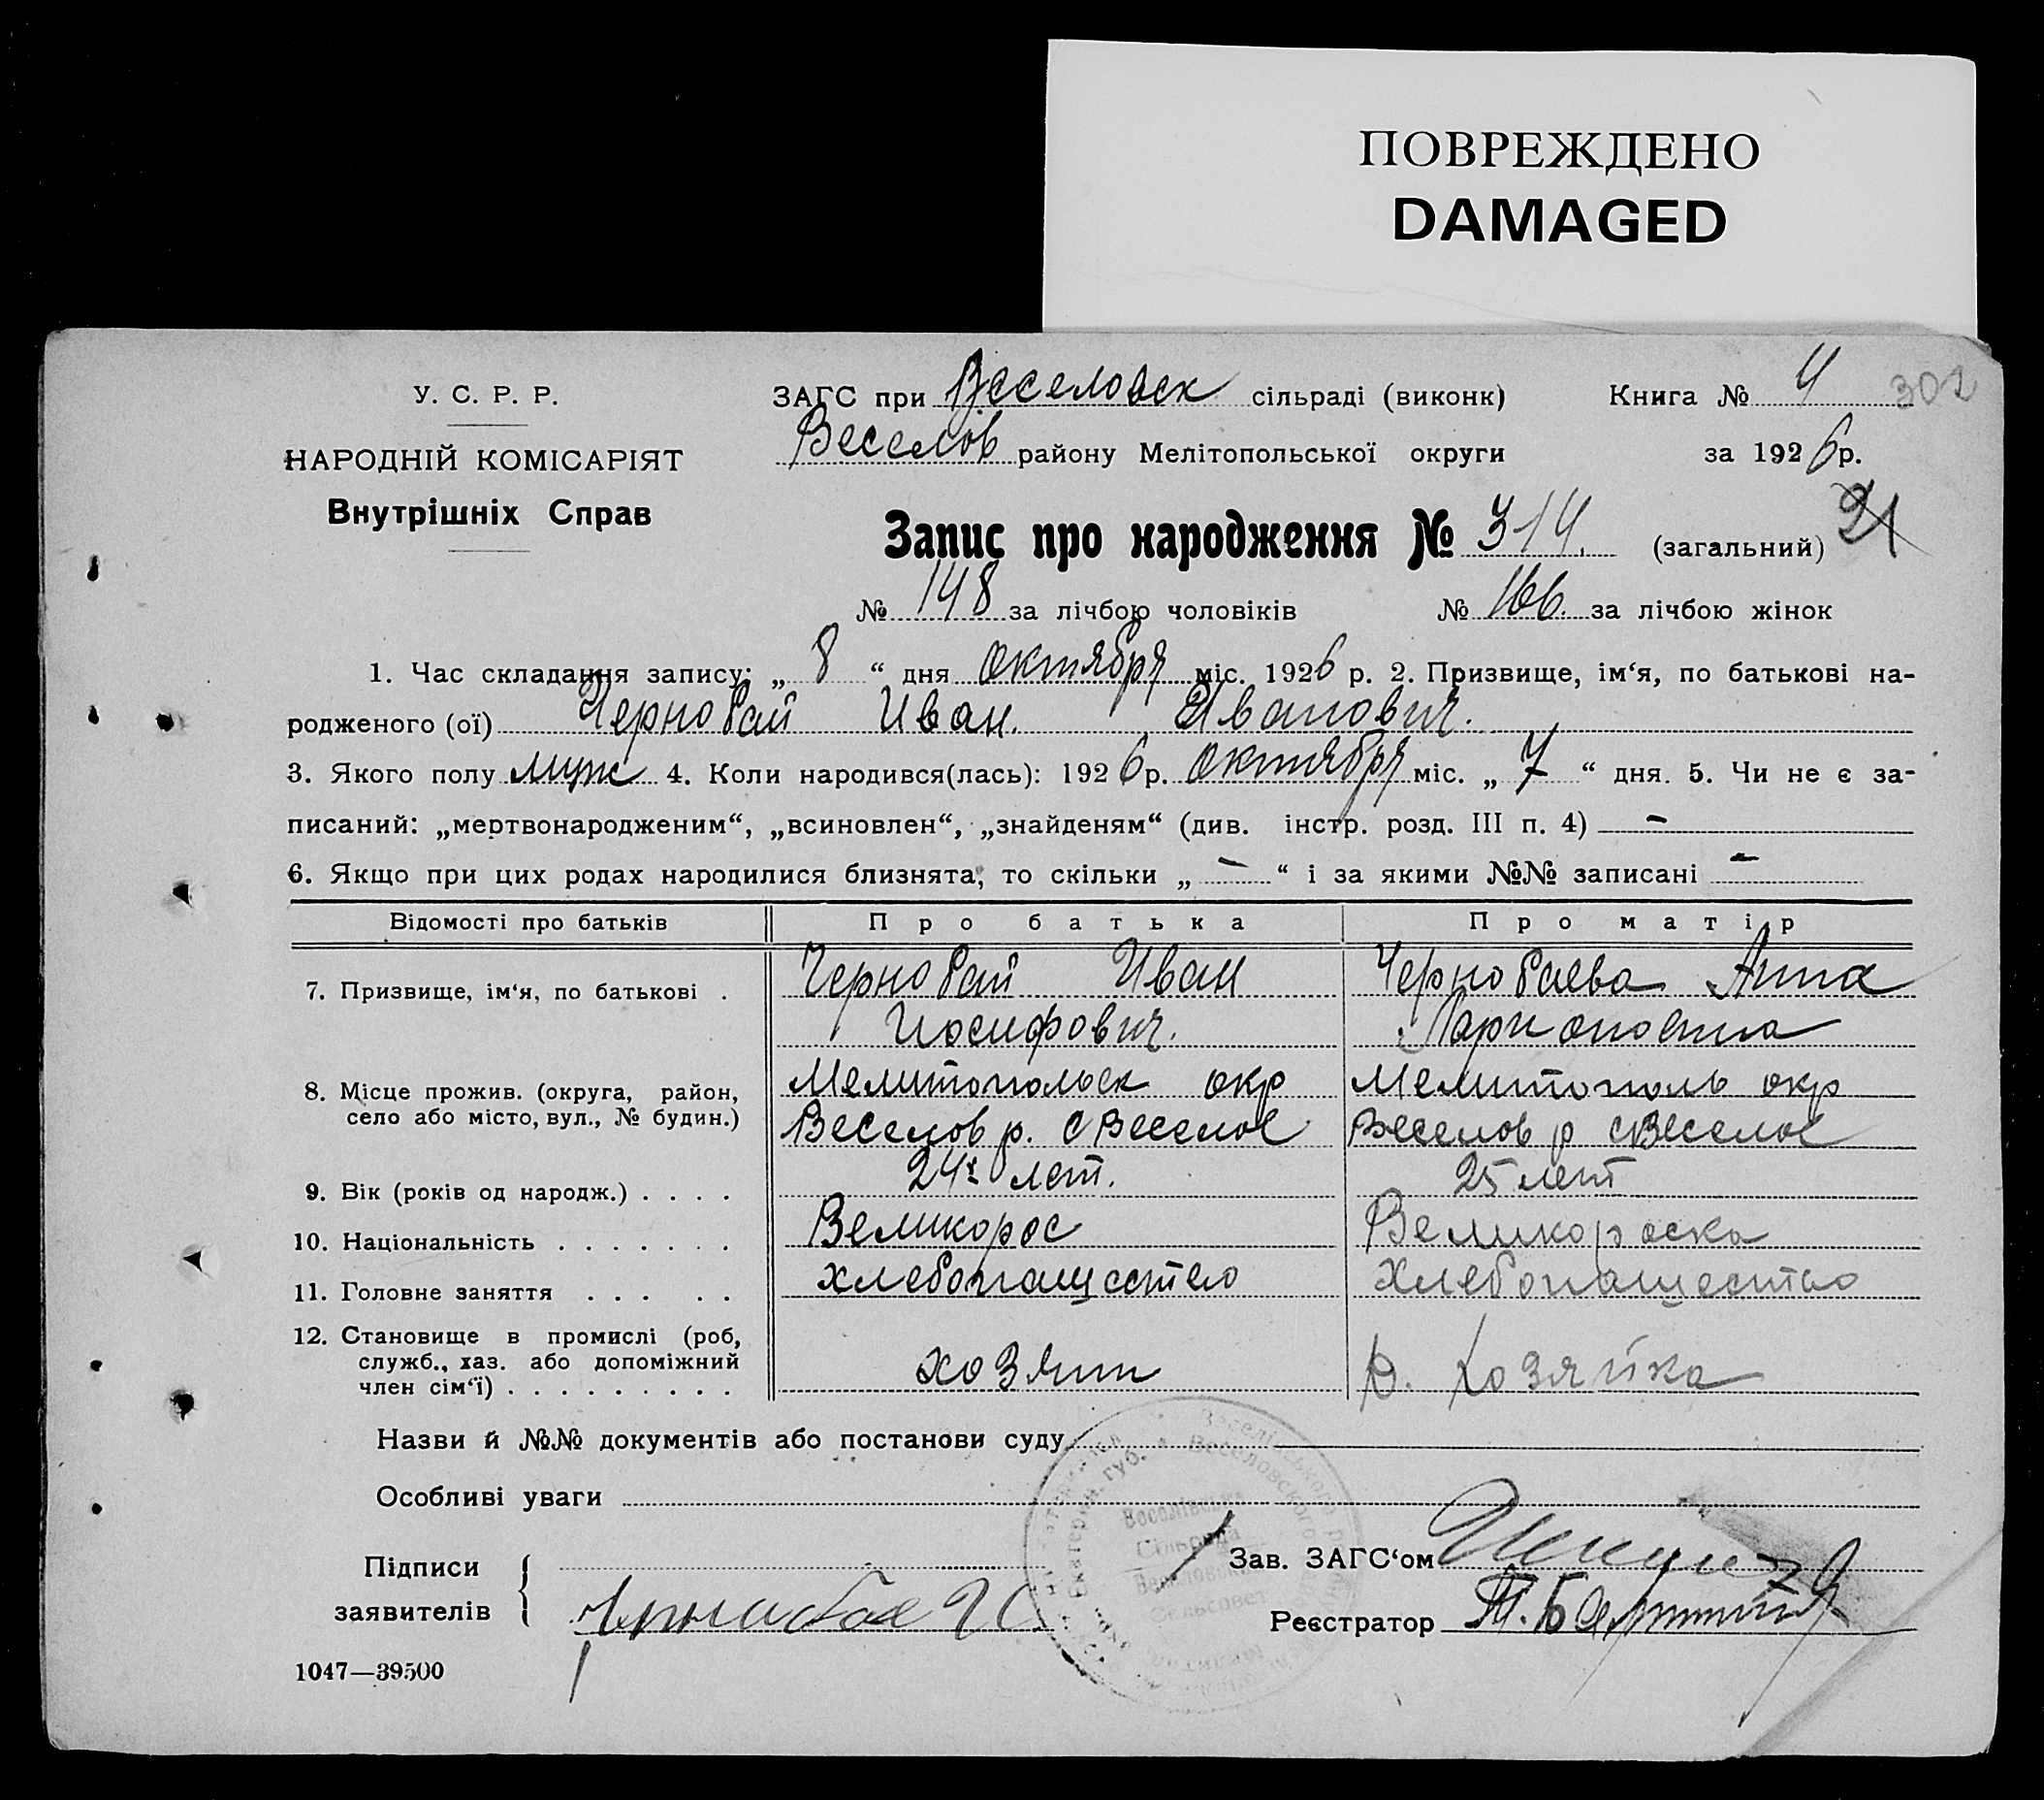 ПОВРЕЖДЕНО
DAMAGED
У. С. Р. Р.
НАРОДНІЙ КОМІСАРІЯТ
Внутрішніх Справ
ЗАГС при Веселовск сільраді (виконк)
Веселов району Мелітопольської округи
Книга № 4 302
за 1926 р.
Запис про народження № 314. (загальний) 21
№ 148 за лічбою чоловіків № 166. за лічбою жінок
1. Час складання запису: „ 8 “ дня октября міс. 1926 р. 2. Призвище, ім‘я, по батькові на-
родженого (ої) Чернобай Иван. Иванович.
3. Якого полу муж 4. Коли народився(лась): 1926 р. октября міс. „ 7 “ дня. 5. Чи не є за-
писаний: „мертвонародженим“, „всиновлен“, „знайденям“ (див. інстр. розд. III п. 4) -
6. Якщо при цих родах народилися близнята, то скільки „ - “ і за якими №№ записані -
Відомості про батьків Про батька Про матір
7. Призвище, ім‘я, по батькові . Чернобай Иван Чернобаева Анна
Иосифович. Ларионовна
8. Місце прожив. (округа, район, Мелитопольск окр Мелитополь окр
село або місто, вул., № будин.) Веселов р. с Веселое Веселов р с Веселое
9. Вік (років од народж.) . . . . 24х лет. 25 лет
10. Національність . . . . . . . Великорос Великороска
11. Головне заняття . . . . . хлебопащество хлебопащество
12. Становище в промислі (роб,
служб., хаз. або допоміжний хозяин Д. хозяйка
член сім‘ї) . . . . . . . . .
Назви й №№ документів або постанови суду
Особливі уваги
Веселівська
Сільрада
Веселовский
Сельсовет
Підписи
заявителів
Зав. ЗАГС‘ом
Реєстратор
1047—39500